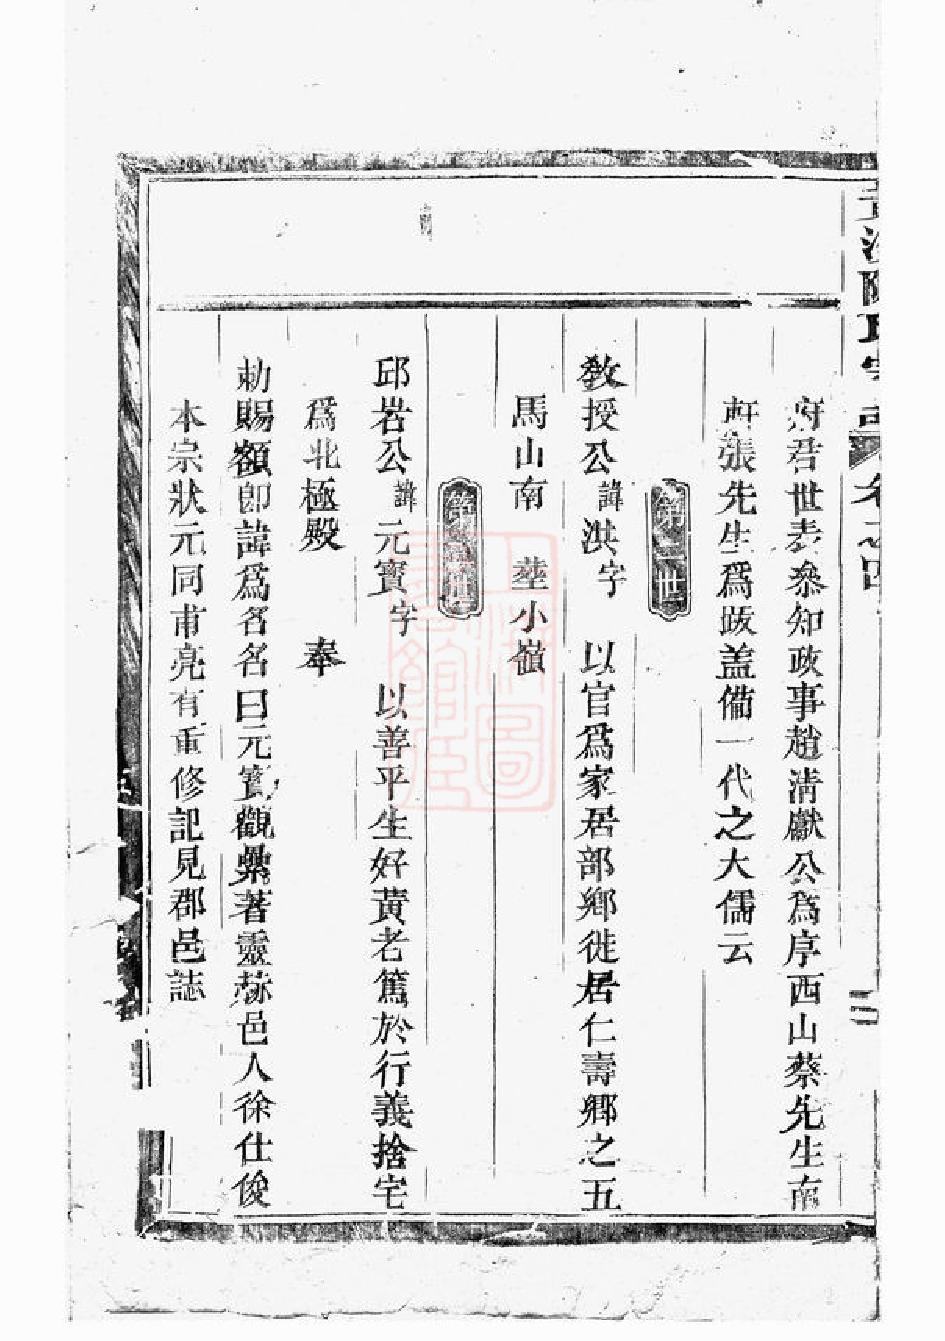 陳氏宗 卷之四
二
府君世表叅知政事趙淸獻公爲序西山蔡先生南
軒張先生爲跋蓋僃一代之大儒云
第二世
敎授公諱淇字 以官爲家居部鄉徙居仁壽鄉之五
馬山南 塟小嶺
第三世
邱岩公諱元寶字 以善平生好黃老篤於行義捨宅
爲北極殿 奉
勅賜額卽諱爲名名曰元寳觀纍著靈 邑人徐仕俊
本宗狀元同甫亮有重修記見郡邑誌
上海圖
館